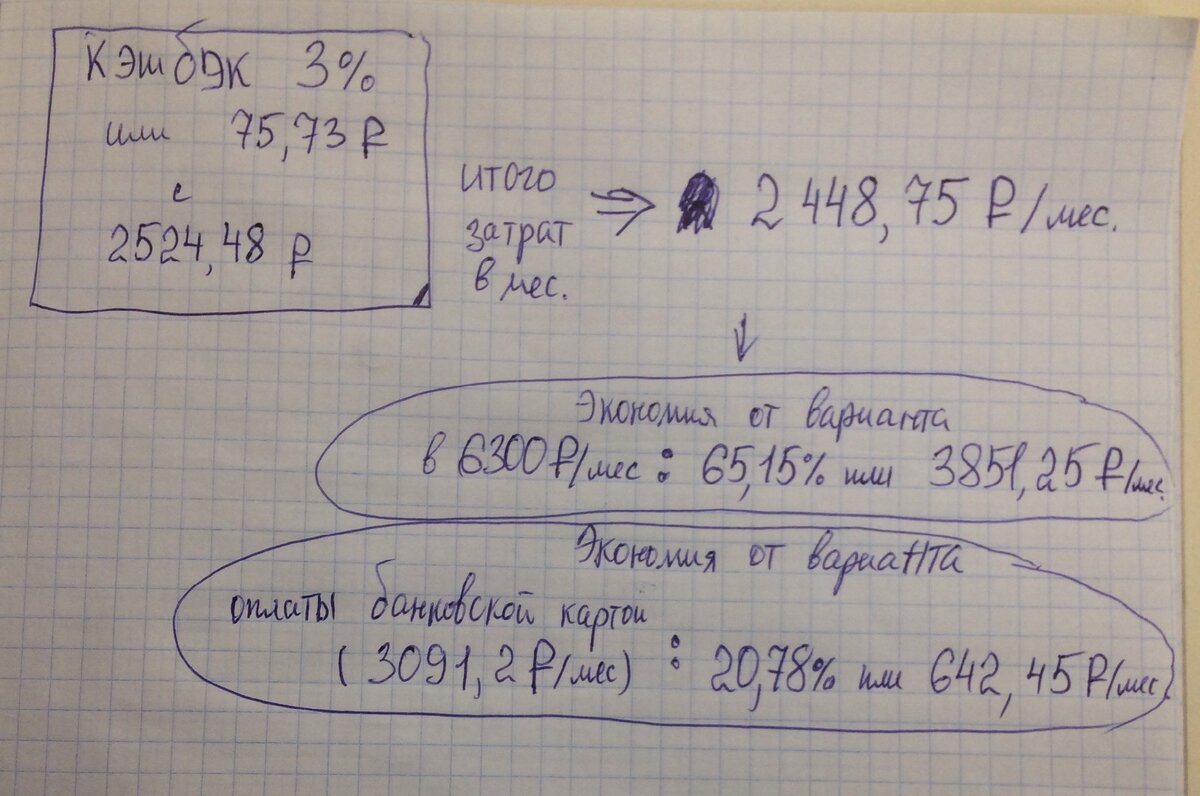 кэшбэк 3%
или 75,73 ₽
с
2524,48 ₽
итого
затрат
в мес.
⇒ 2 448,75 ₽/мес.
↓
Экономия от варианта
в 6300₽/мес : 65,15% или 3851,25 ₽/мес.
Экономия от варианта
оплаты банковской картой
(3091,2₽/мес) : 20,78% или 642,45₽/мес